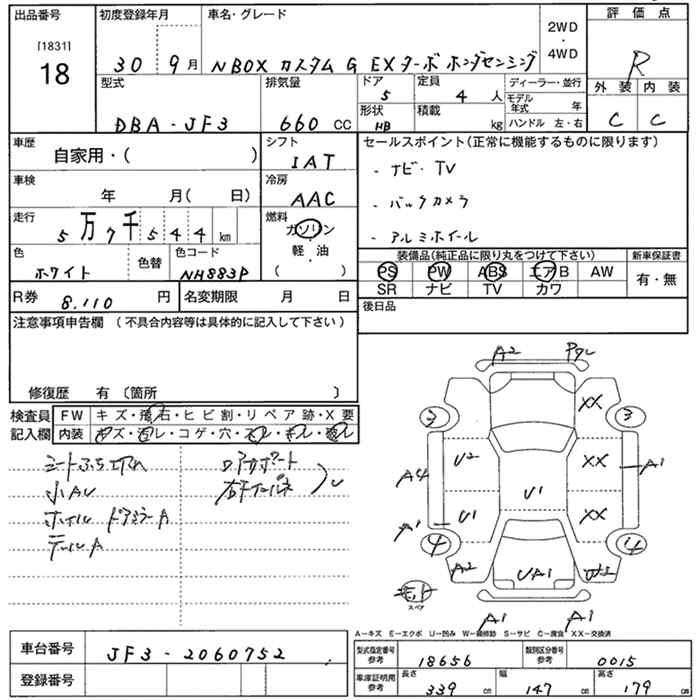 出品番号 初度登録年月 車名・グレード 2WD・4WD 評価点
[1831]
18
30 9月 NBOX カスタム G EXターボ ホンダセンシング R
型式 排気量 ドア 定員 ディーラー・並行 外装 内装
5 4人 モデル年式 年
DBA-JF3 660 CC 形状 HB 積載 kg ハンドル 左・右 C C
車歴 シフト セールスポイント(正常に機能するものに限ります)
自家用・( ) IAT - ナビ・TV
車検 冷房
年 月( 日) AAC - バックカメラ
走行 燃料
5万7千544km ガソリン - アルミホイール
軽・油
( )
色 色替 色コード 装備品(純正品に限り丸をつけて下さい) 新車保証書
ホワイト NH883P PS PW ABS エアB AW 有・無
SR ナビ TV カワ
R券 8,110円 名変期限 月 日 後日品
注意事項申告欄 (不具合内容等は具体的に記入して下さい)
修復歴 有 (箇所 )
検査員 FW キズ・飛石・ヒビ割・リペア跡・X要
記入欄 内装 キズ・汚レ・コゲ・穴・スレ・キレ・破レ
小AU
ホイル ドアミラーA
テールA
A2
XX
3 3
U2 XX A1
A4
U1
U1 XX
A1
4 4
A2 UA1
スペア
A1 A1
A-キズ E-エクボ U-凹み W-補修跡 S-サビ C-腐食 XX-交換済
車台番号 JF3-2060752
型式指定番号 参考 18656 類別区分番号 参考 0015
登録番号
車庫証明用 参考 長さ 339 cm 幅 147 cm 高さ 179 cm